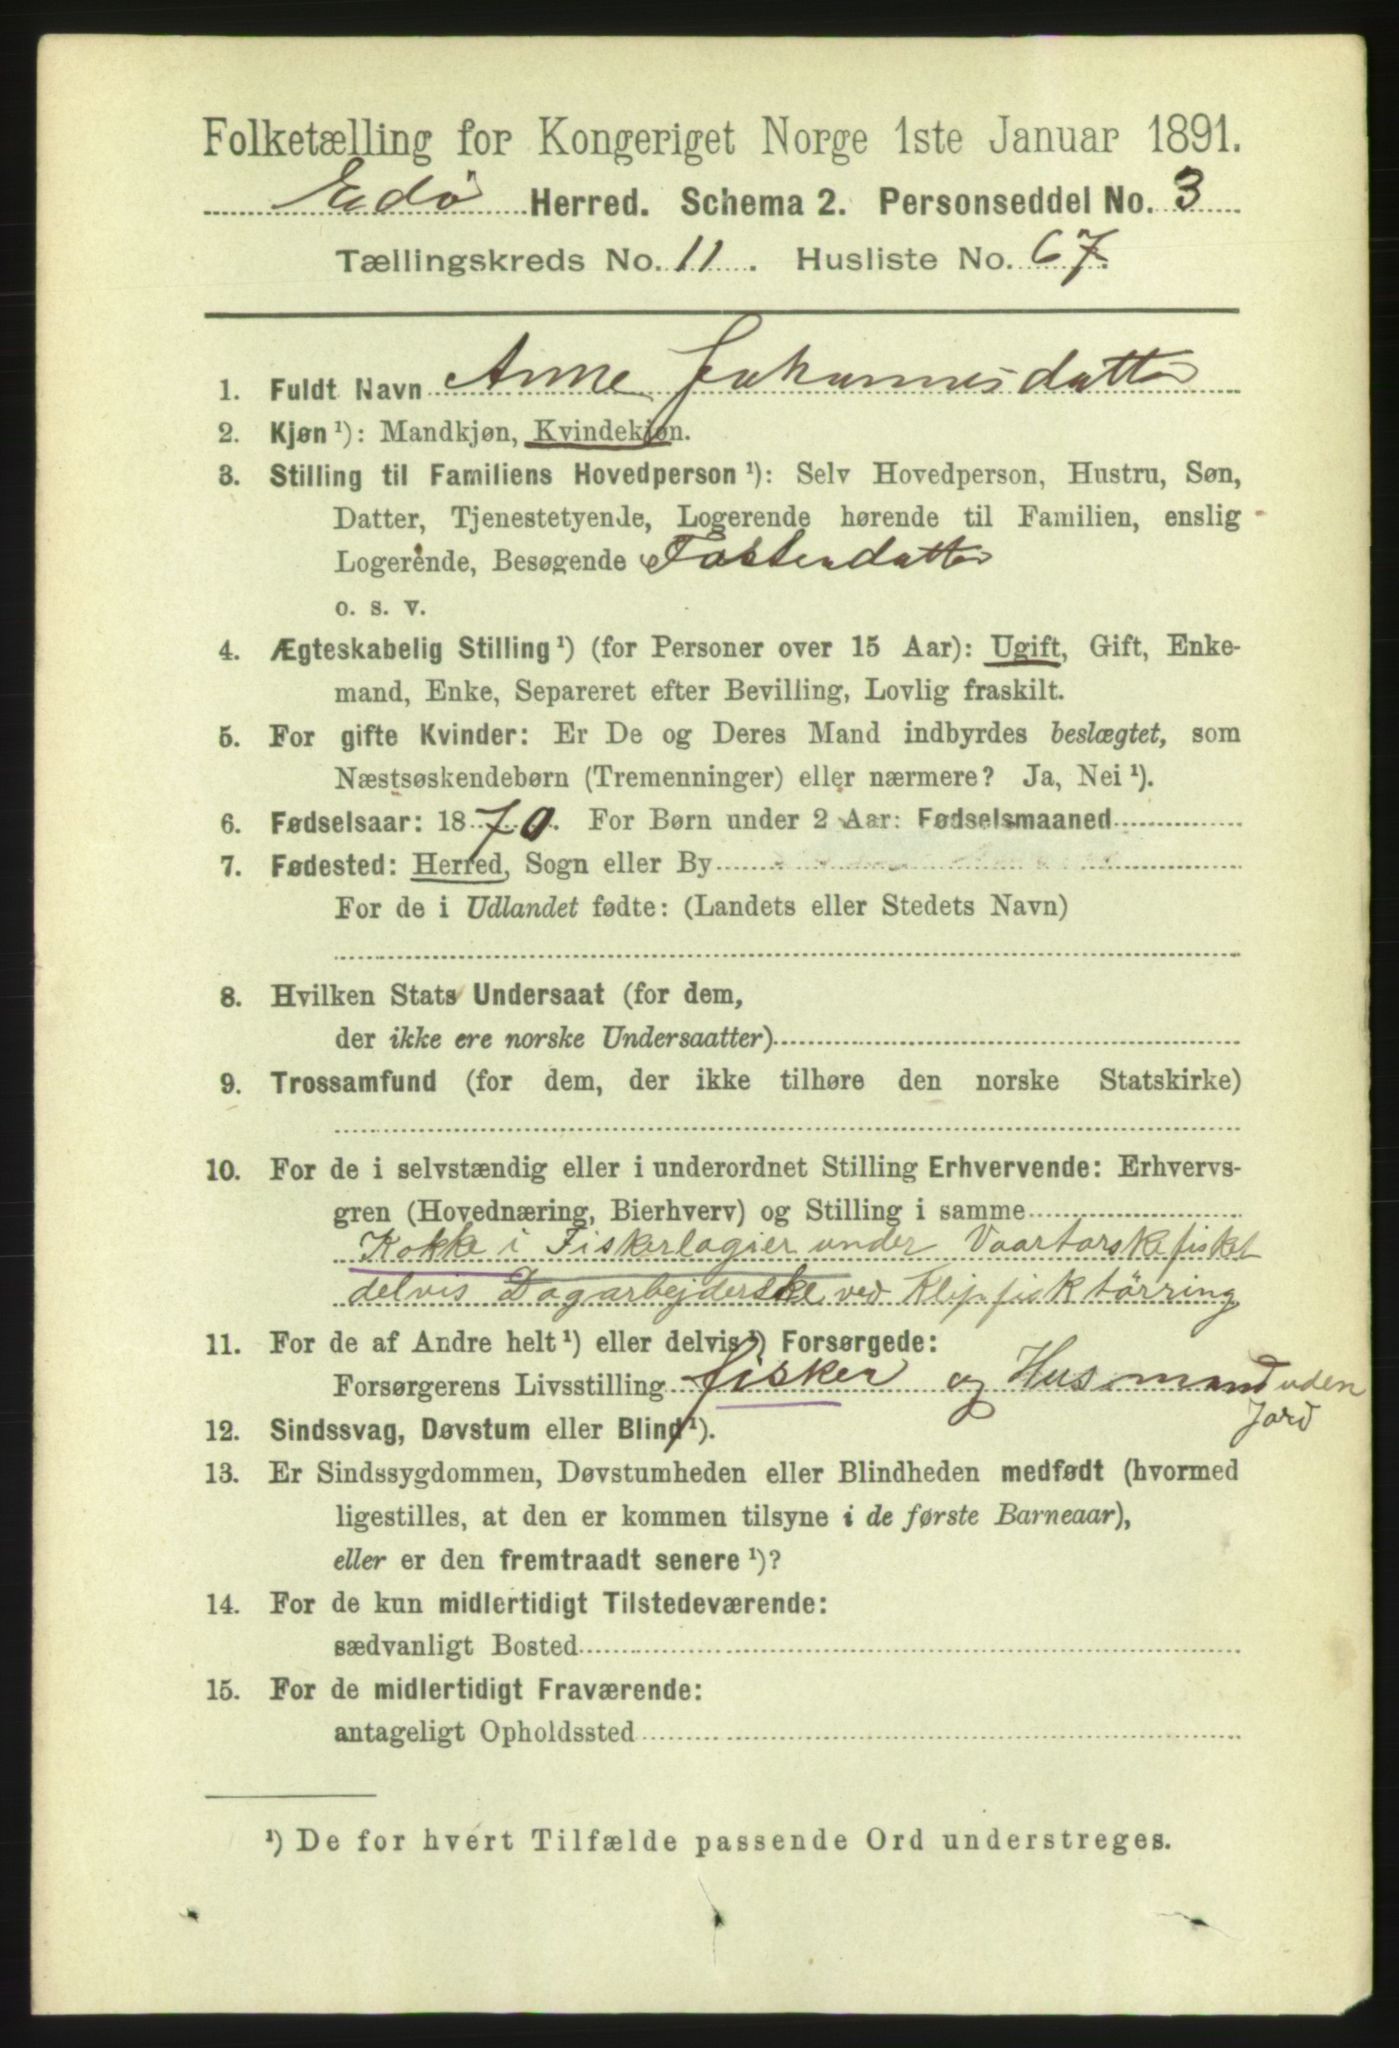 Folketælling for Kongeriget Norge 1ste Januar 1891.
Edö Herred. Schema 2. Personseddel No. 3
Tællingskreds No. 11. Husliste No. 67.
1. Fuldt Navn Anne Johannesdatter
2. Kjøn ¹): Mandkjøn, Kvindekjøn.
3. Stilling til Familiens Hovedperson ¹): Selv Hovedperson, Hustru, Søn,
Datter, Tjenestetyende, Logerende hørende til Familien, enslig
Logerende, Besøgende Fosterdatter
o. s. v.
4. Ægteskabelig Stilling ¹) (for Personer over 15 Aar): Ugift, Gift, Enke-
mand, Enke, Separeret efter Bevilling, Lovlig fraskilt.
5. For gifte Kvinder: Er De og Deres Mand indbyrdes beslægtet, som
Næstsøskendebørn (Tremenninger) eller nærmere? Ja, Nei ¹).
6. Fødselsaar: 1870. For Børn under 2 Aar: Fødselsmaaned
7. Fødested: Herred, Sogn eller By
For de i Udlandet fødte: (Landets eller Stedets Navn)
8. Hvilken Stats Undersaat (for dem,
der ikke ere norske Undersaatter)
9. Trossamfund (for dem, der ikke tilhøre den norske Statskirke)
10. For de i selvstændig eller i underordnet Stilling Erhvervende: Erhvervs-
gren (Hovednæring, Bierhverv) og Stilling i samme
Kokke i Fiskerlogier under Vaartorskefisket
delvis Dagarbejderske ved Klipfisktörring
11. For de af Andre helt ¹) eller delvis ¹) Forsørgede:
Forsørgerens Livsstilling fisker og Husmand uden
Jord
12. Sindssvag, Døvstum eller Blind ¹).
13. Er Sindssygdommen, Døvstumheden eller Blindheden medfødt (hvormed
ligestilles, at den er kommen tilsyne i de første Barneaar),
eller er den fremtraadt senere ¹)?
14. For de kun midlertidigt Tilstedeværende:
sædvanligt Bosted
15. For de midlertidigt Fraværende:
antageligt Opholdssted
¹) De for hvert Tilfælde passende Ord understreges.